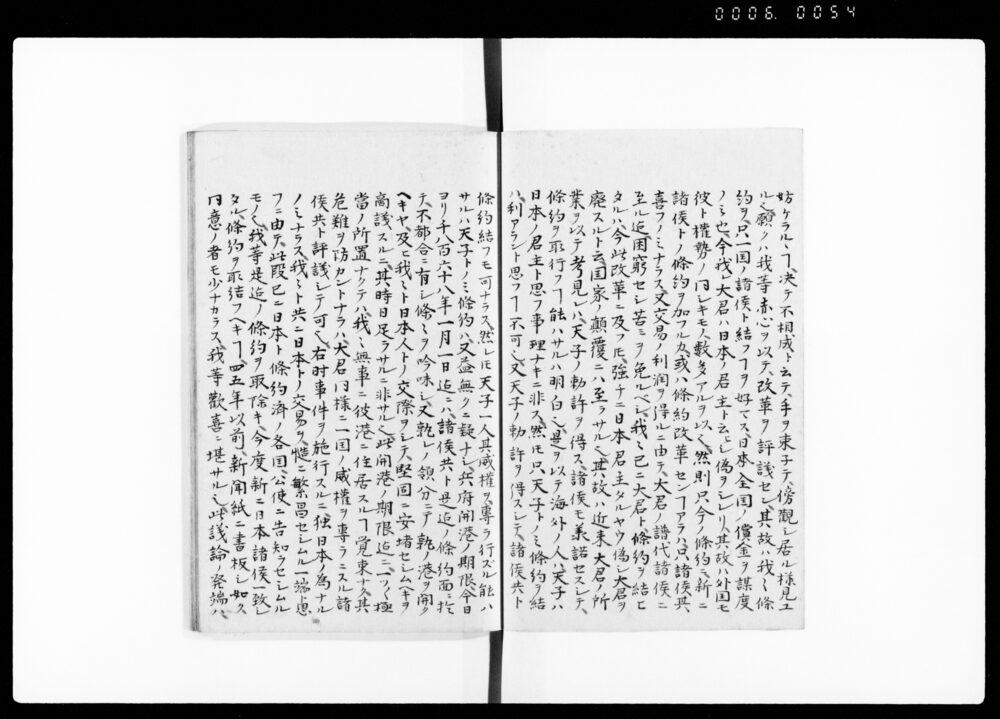 0006. 0054
妨ケラルヽヿ、決テ不相成ト云テ、手ヲ束子テ、傍觀シ居ル様見エ
ル、願クハ我等赤心ヲ以テ、改革ヲ評議セン、其故ハ我々條
約ヲ、只一国ノ諸侯ト結フヿヲ好マス、日本全国ノ償金ヲ謀度
ノミ也、今我レ大君ハ日本ノ君主ト云ヒシ偽ヲシレリ、其故ハ外国モ
彼ト権勢ノ同シキモノ数多アルヲ以也、然則只今ノ條約ニ新ニ
諸侯トノ條約ヲ加フル乎、或ハ條約改革センヿアラハ、只諸侯其
喜フノミナラス、又交易ノ利潤ヲ得ルニ由テ、大君ノ譜代諸侯ニ
至ル迄困窮セシ苦ミヲ免ルヘシ、我々已ニ大君ト條約ヲ結ヒ
タルハ、今此改革ニ及フ𪜈、強ナニ日本君主タルヤウ偽シ大君ヲ
廃スルト云、国家ノ顛覆ニハ至ラサル也、其故ハ近来大君ノ所
業ヲ以テ考見レハ、天子ノ勅許ヲ得ス、諸侯モ義諾セスシテ、
條約ヲ取行フヿ能ハサルハ明白也、是ヲ以テ海外ノ人ハ天子ハ
日本ノ君主ト思フ事理ナキニ非ス、然𪜈只天子トノミ條約ヲ結
ハ、利アラント思フヿ不可也、又天子ノ勅許ヲ得スシテ、諸侯共ト
條約結フモ可ナラス、然レ𪜈天子一人其威權ヲ專ラ行ズル能ハ
サルハ天子トノミ條約ハ、又益無クニ疑ナシ、兵府開港ノ期限、今日
ヨリ千八百六十八年一月一日迄ニハ、諸侯共ト是迄ノ條約面ニ於
テ、不都合ニ有シ條々ヲ吟味シ、又孰レノ領分ニテ孰ノ港ヲ開ク
ヘキヤ、及ヒ我々ト日本人トノ交際ヲシテ、堅固ニ安堵セシムヘキヲ
商議スルニ、其時日足ラサルニ非サル也、此開港ノ期限迄ニ、ツヽ極
當ノ所置ナクテハ、我々無事ニ彼港ニ住居スルヿ覚束ナク、其
危難ヲ防カントナラハ、大君同様ニ一国ノ威權ヲ專ラニスル諸
侯共ト評議シテ可也、右时事件ヲ施行スルニ、独日本ノ為ナル
ノミナラス、我々ト共ニ日本トノ交易ヲ、慥ニ繁昌セシムル一端ト思
フニ由テ、此段已ニ日本ト條約済ノ各国公使ニ告知ラセシムル
モノ也、我等是迄ノ條約ヲ取除キ、今度新ニ日本諸侯ト致シ
タル條約ヲ取結フヘキヿ、四五年以前、新聞紙ニ書板シ如ク
同意ノ者モ少ナカラス、我等歡喜ニ堪サル也、此議論ノ発端ハ、